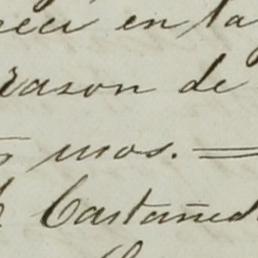 en la
razon de
mos. =
Castañed